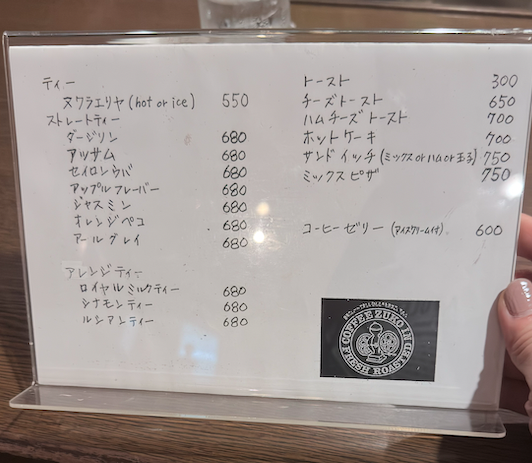 ティー
ヌワラエリヤ (hot or ice) 550
ストレートティー
ダージリン 680
アッサム 680
セイロンウバ 680
アップルフレーバー 680
ジャスミン 680
オレンジペコ 680
アールグレイ 680
アレンジティー
ロイヤルミルクティー 680
シナモンティー 680
ルシアンティー 680
トースト 300
チーズトースト 650
ハムチーズトースト 700
ホットケーキ 700
サンドイッチ (ミックスorハムor玉子) 750
ミックスピザ 750
コーヒーゼリー (アイスクリーム付) 600
COFFEE ZUKO IN
FRESH ROAST